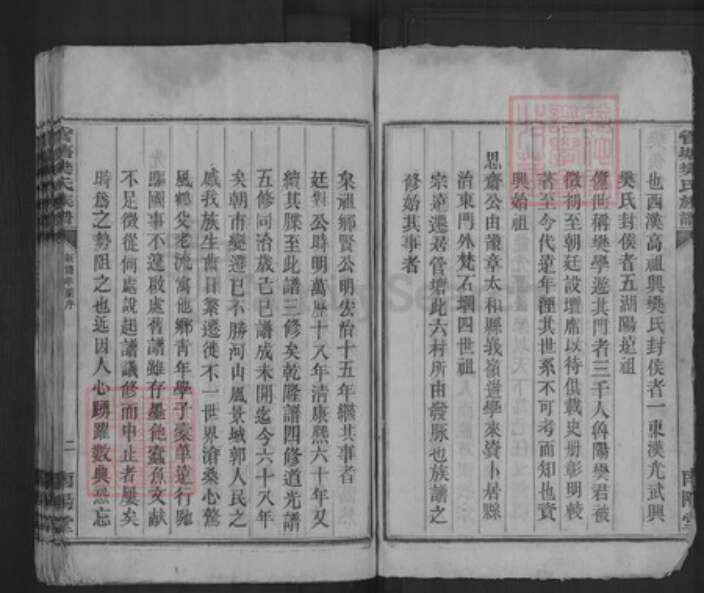 樊氏也西漢高祖興樊氏封侯者一東漢光武興
樊氏封侯者五湖陽始祖
儵世稱樊學遊其門者三千人魯陽樊君被
徵初至朝廷設壇席以待俱載史册彰明較
著至今代遠年湮其世系不可考而知也資
興始祖
思齋公由徽章太和縣鵞嶺遊學來資卜居縣
治東門外梵石堋四世祖
宗遠遷居管塘此六村所由發脉也族譜之
修始其事者
泉祖鄉賢公明宏治十五年繼其事者
廷對公時明萬歷十八年清康熙六十年又
續其牒至此譜三修矣乾隆譜四修道光譜
五修同治歲己巳譜成未開迄今六十八年
矣朝市變遷已不勝河山風景城郭人民之
感我族生齒日繁遷徙不一世界滄桑心驚
風鶴父老流寓他鄉青年學子橐筆遠行馳
驅國事不遑啟處舊譜雖存墨色蠹魚文獻
不足徵從何處說起譜議修而中止者屢矣
時為之勢阻之也近因人心踴躍數典恐忘
管塘樊氏族譜
二
南陽堂